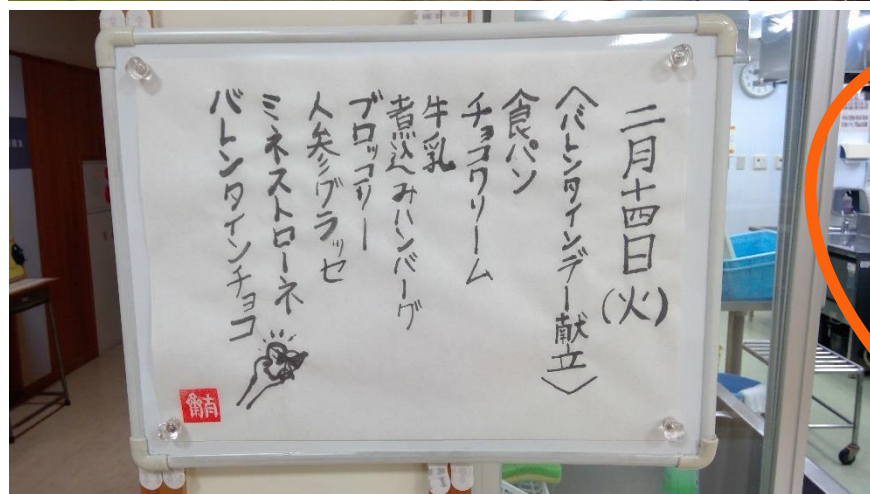 二月十四日(火)
〈バレンタインデー献立〉
食パン
チョコクリーム
牛乳
煮込みハンバーグ
ブロッコリー
人参グラッセ
ミネストローネ
バレンタインチョコ